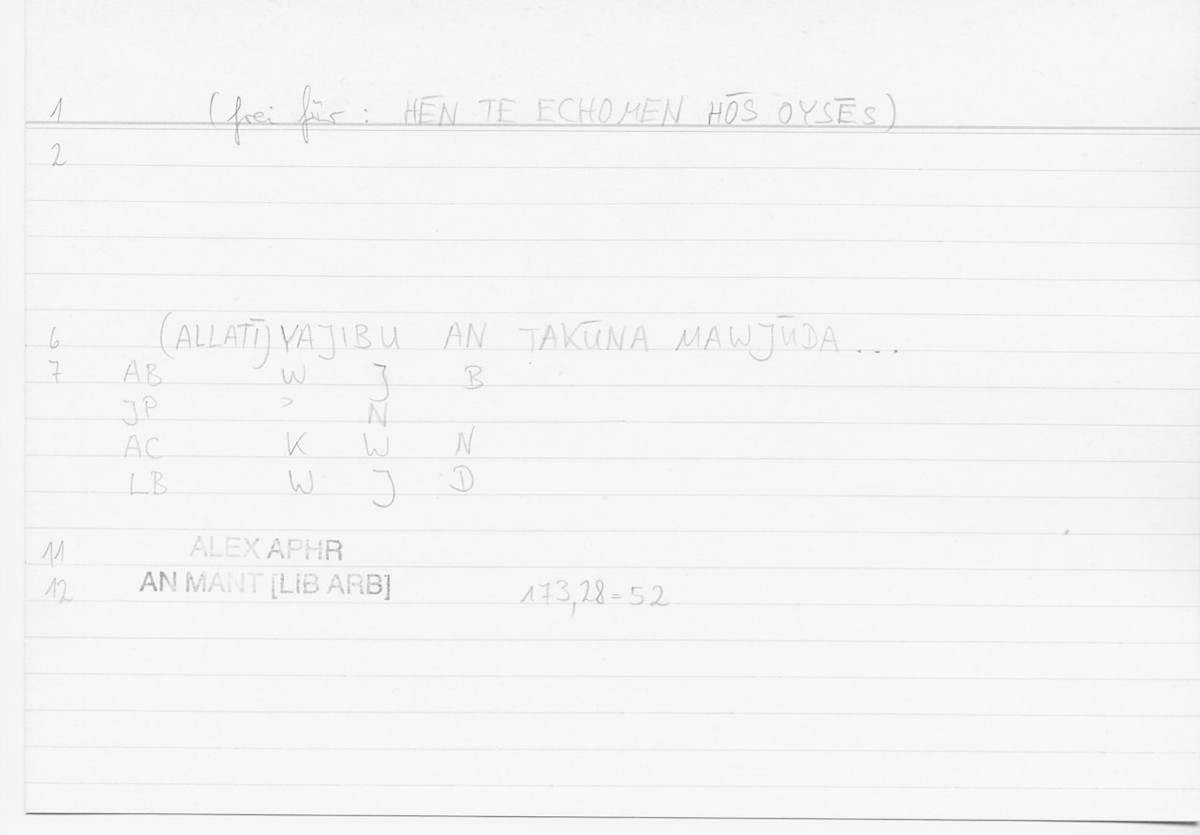 1 (frei für: HĒN TE ECHOMEN HŌS OYSĒS)
2
6 (ALLATĪ) YAJIBU AN TAKŪNA MAWJŪDA...
7 AB W J B
JP > N
AC K W N
LB W J D
11 ALEX APHR
12 AN MANT [LIB ARB] 173,28=52